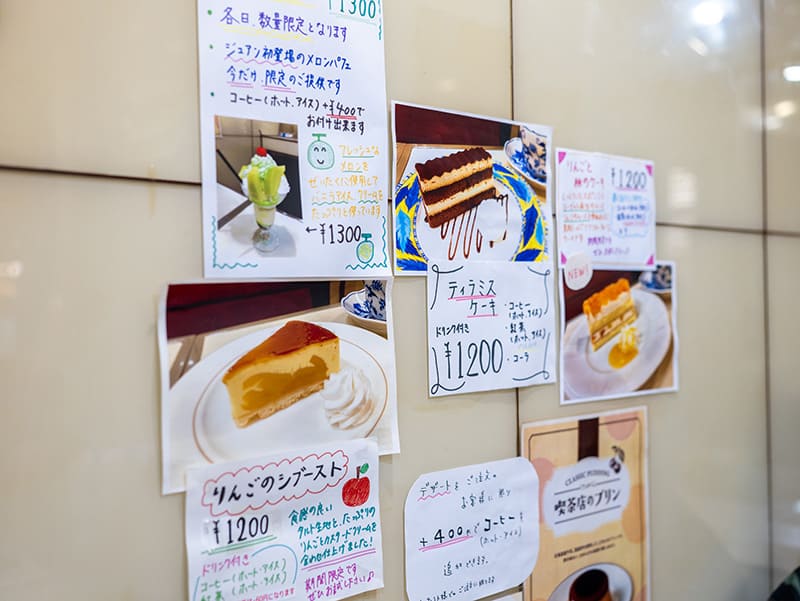 ¥1300
各日、数量限定となります
・ジュアン初登場のメロンパフェ
今だけ、限定のご提供です
・コーヒー(ホット、アイス)+¥400で
お付け出来ます
フレッシュな
メロンを
ぜいたくに使用して
バニラアイス、クリームを
たっぷりと使っています
←¥1300
ティラミス
ケーキ
ドリンク付き
¥1200
・コーヒー
(ホット、アイス)
・紅茶
(ホット、アイス)
・コーラ
りんごと
¥1200
NEW!
りんごのシブースト
¥1200
ドリンク付き
コーヒー(ホット・アイス)
紅茶(ホット・アイス)
食感の良い
タルト生地と、たっぷりの
りんごとカスタードクリームを
合わせ仕上げました!
期間限定です
ぜひお試し下さい♪
デザートをご注文の
お客様に限り
+400円でコーヒーを
(ホット・アイス)
追加できます。
CLASSIC PUDDING
喫茶店のプリン